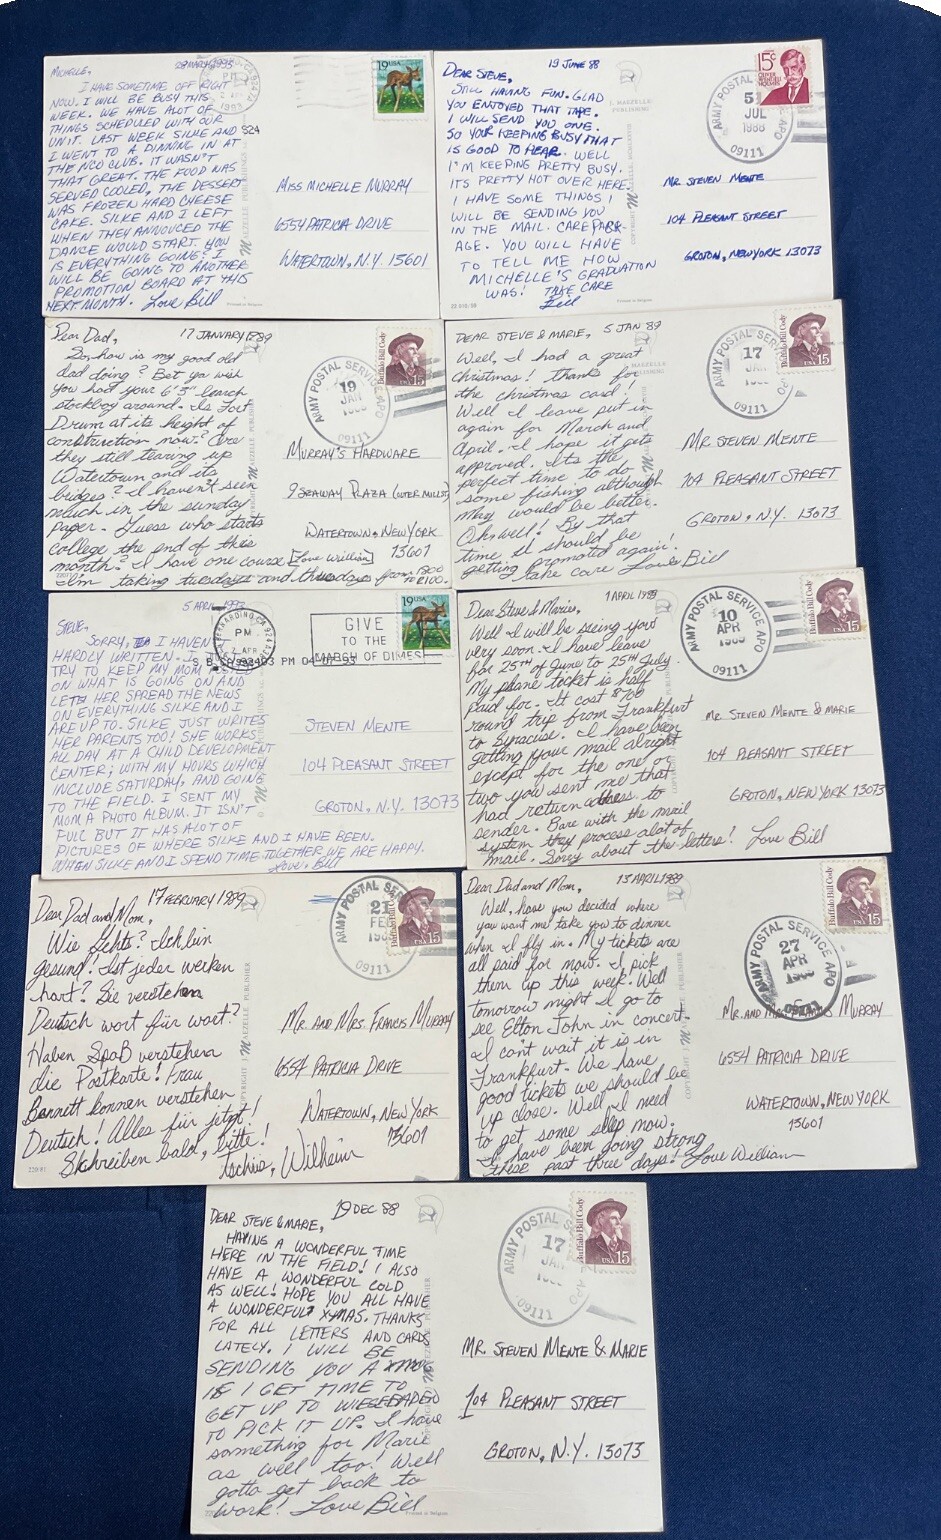 MICHELLE,
I HAVE SOMETIME OFF RIGHT
NOW. I WILL BE BUSY THIS
WEEK. WE HAVE ALOT OF
THINGS SCHEDULED WITH OUR
UNIT. LAST WEEK SILKE AND
I WENT TO A DINNING IN AT
THE NCO CLUB. IT WASN'T
THAT GREAT. THE FOOD WAS
SERVED COOLED, THE DESSERT
WAS FROZEN HARD CHEESE
CAKE. SILKE AND I LEFT
WHEN THEY ANNOUCED THE
DANCE WOULD START.
IS EVERYTHING GOING? I
WILL BE GOING TO ANOTHER
PROMOTION BOARD AT THIS
NEXT MONTH. Love Bill
19USA
MISS MICHELLE MURRAY
6554 PATRICIA DRIVE
WATERTOWN, N.Y. 15601
Printed in Belgium
19 JUNE 88
DEAR STEVE,
STILL HAVING FUN. GLAD
YOU ENJOYED THAT TAPE.
I WILL SEND YOU ONE.
SO YOUR KEEPING BUSY THAT
IS GOOD TO HEAR. WELL
I'M KEEPING PRETTY BUSY.
ITS PRETTY HOT OVER HERE.
I HAVE SOME THINGS I
WILL BE SENDING YOU
IN THE MAIL. CARE PACK-
AGE. YOU WILL HAVE
TO TELL ME HOW
MICHELLE'S GRADUATION
WAS! TAKE CARE
Bill
15c
ARMY POSTAL
5
JUL
1988
APO
09111
MR. STEVEN MENTE
104 PLEASANT STREET
GROTON, NEW YORK 13073
Printed in Belgium
17 JANUARY 1989
Dear Dad,
So, how is my good old
dad doing? Bet ya wish
you had your 6'5" leach
stockboy around. Is Fort
Drum at its height of
construction now? Are
they still tearing up
Watertown and its
bridges? I haven't seen
much in the sunday
paper. Guess who starts
college the end of this
month? I have one course [Love William]
I'm taking tuesdays and thusdays from 1800
TO 2100.
Buffalo Bill Cody
USA 15
ARMY POSTAL SERVICE APO
19
JAN
09111
MURRAY'S HARDWARE
9 SEAWAY PLAZA (OUTER MILL ST)
WATERTOWN, NEW YORK
13601
5 JAN 89
DEAR STEVE & MARIE,
Well, I had a great
Christmas! Thanks for
the christmas card!
Well I leave put in
again for March and
April. I hope it gets
approved. Its the
perfect time to do
some fishing although
May would be better.
Oh, well! By that
time I should be
getting promoted again!
Take care Love Bill
Buffalo Bill Cody
USA 15
ARMY POSTAL SERVICE APO
17
JAN
09111
MR. STEVEN MENTE
104 PLEASANT STREET
GROTON, N.Y. 13073
5 APRIL 1993
STEVE,
SORRY, I HAVEN'T
HARDLY WRITTEN. I
TRY TO KEEP MY MOM POSTED
ON WHAT IS GOING ON AND
LETS HER SPREAD THE NEWS
ON EVERYTHING SILKE AND I
ARE UP TO. SILKE JUST WRITES
HER PARENTS TOO! SHE WORKS
ALL DAY AT A CHILD DEVELOPMENT
CENTER; WITH MY HOURS WHICH
INCLUDE SATURDAY, AND GOING
TO THE FIELD. I SENT MY
MOM A PHOTO ALBUM. IT ISN'T
FULL BUT IT HAS ALOT OF
PICTURES OF WHERE SILKE AND I HAVE BEEN.
WHEN SILKE AND I SPEND TIME TOGETHER WE ARE HAPPY.
Love, Bill
PM
GIVE
TO THE
MARCH OF DIMES
19USA
STEVEN MENTE
104 PLEASANT STREET
GROTON, N.Y. 13073
1 APRIL 1989
Dear Steve & Marie,
Well I will be seeing you
very soon. I have leave
for 25th of June to 25th July.
My plane ticket is half
paid for. It cost $700
round trip from Frankfurt
to Syracuse. I have been
getting your mail alright
except for the one or
two you sent me that
had return address to
sender. Bare with the mail
system they process alot of
mail. Sorry about the letters! Love Bill
Buffalo Bill Cody
USA 15
ARMY POSTAL SERVICE APO
10
APR
1989
09111
Mr. STEVEN MENTE & MARIE
104 PLEASANT STREET
GROTON, NEW YORK 13073
17 FEBRUARY 1989
Dear Dad and Mom,
Wie Gehts? Ich bin
gesund! Ist jeder werken
hart? Sie verstehen
Deutsch wort für wort?
Haben Spaß verstehen
die Postkarte! Frau
Bennett konnen verstehen
Deutsch! Alles für jetzt!
Skhreiben bald, bitte!
Tschüs, Wilhelm
Buffalo Bill Cody
USA 15
ARMY POSTAL SERVICE
21
FEB
09111
MR. AND MRS. FRANCIS MURRAY
6554 PATRICIA DRIVE
WATERTOWN, NEW YORK
13601
13 APRIL 1989
Dear Dad and Mom,
Well, have you decided where
you want me take you to dinner
when I fly in. My tickets are
all paid for now. I pick
them up this week! Well
tomorrow night I go to
see Elton John in concert.
I can't wait it is in
Frankfurt. We have
good tickets we should be
up close. Well I need
to get some sleep now.
I have been going strong
these past three days! Love William
Buffalo Bill Cody
USA 15
ARMY POSTAL SERVICE APO
27
APR
1989
09111
MR. AND MURRAY
6554 PATRICIA DRIVE
WATERTOWN, NEW YORK
13601
19 DEC 88
DEAR STEVE & MARIE,
HAVING A WONDERFUL TIME
HERE IN THE FIELD! I ALSO
HAVE A WONDERFUL COLD
AS WELL! HOPE YOU ALL HAVE
A WONDERFUL XMAS. THANKS
FOR ALL LETTERS AND CARDS
LATELY. I WILL BE
SENDING YOU A
IF I GET TIME TO
GET UP TO WIESBADEN
TO PICK IT UP. I have
something for Marie
as well too! Well
gotta get back to
work! Love Bill
Buffalo Bill Cody
USA 15
ARMY POSTAL
17
JAN
APO
09111
MR. STEVEN MENTE & MARIE
104 PLEASANT STREET
GROTON, N.Y. 13073
Printed in Belgium